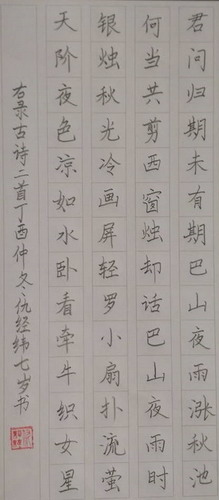 君问归期未有期巴山夜雨涨秋池
何当共剪西窗烛却话巴山夜雨时
银烛秋光冷画屏轻罗小扇扑流萤
天阶夜色凉如水卧看牵牛织女星
右录古诗二首丁酉仲冬仇经纬七岁书